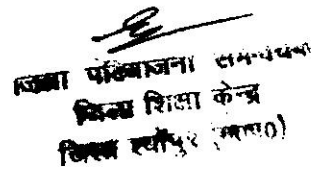 जिला परियोजना समन्वयक
जिला शिक्षा केन्द्र
जिला श्योपुर (म०प्र०)